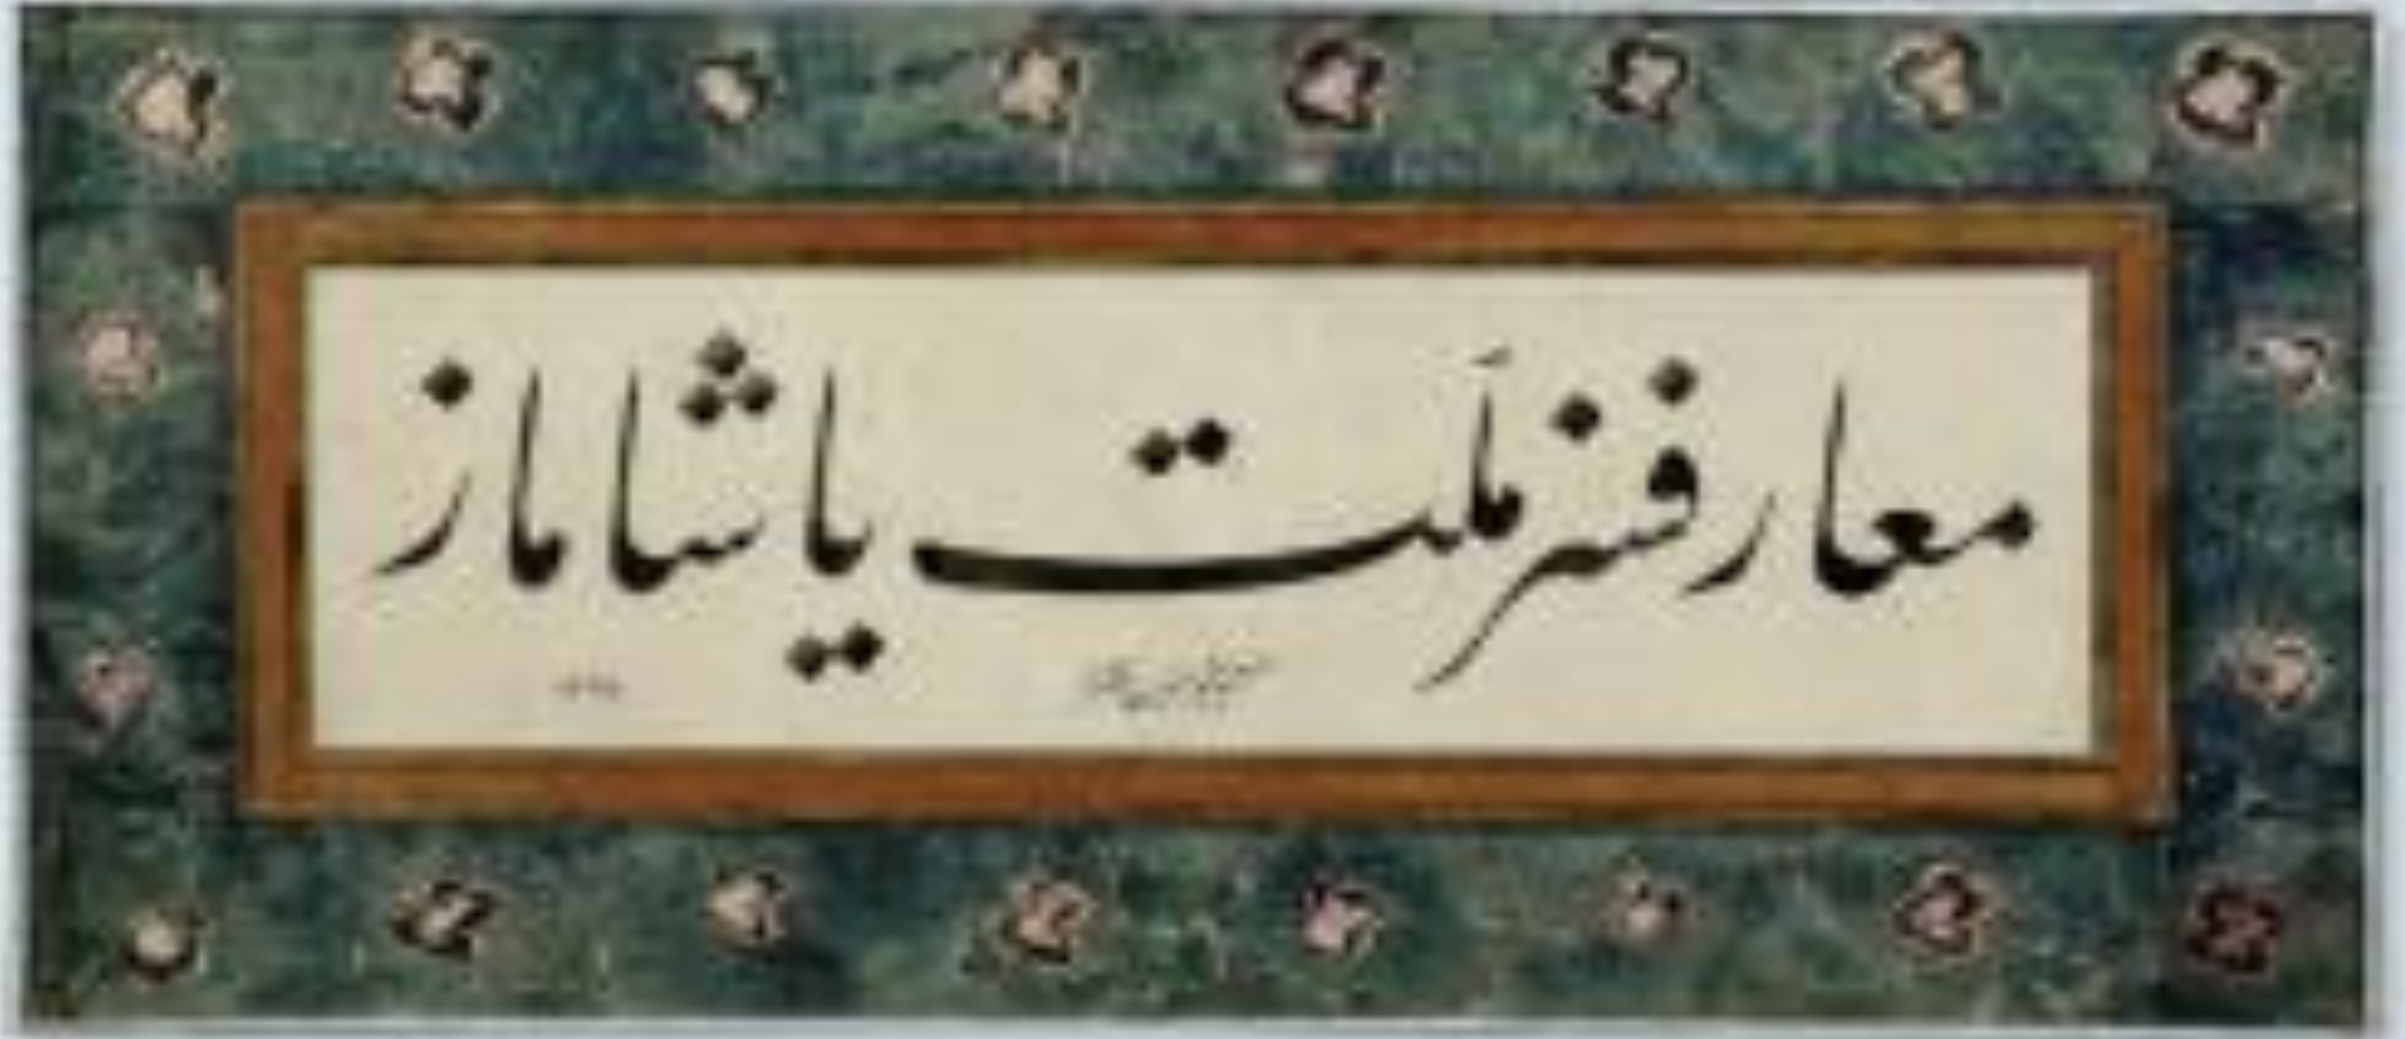 معارفسز ملت ياشاماز